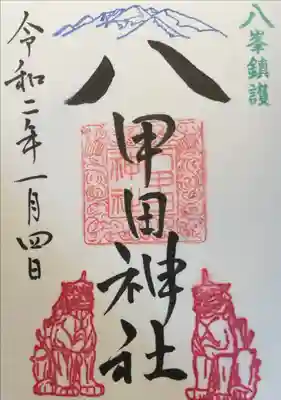 八峯鎮護
八甲田神社
令和二年一月四日